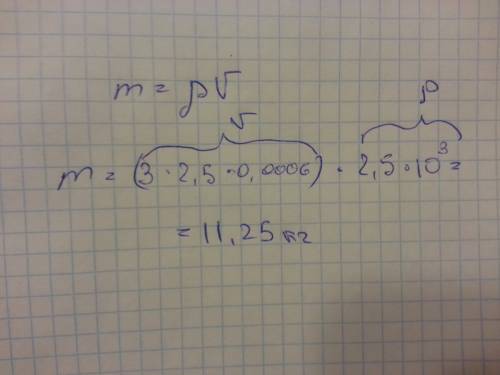 m = ρV
V ρ
m = (3 · 2,5 · 0,0006) · 2,5 · 10³ =
= 11,25 кг